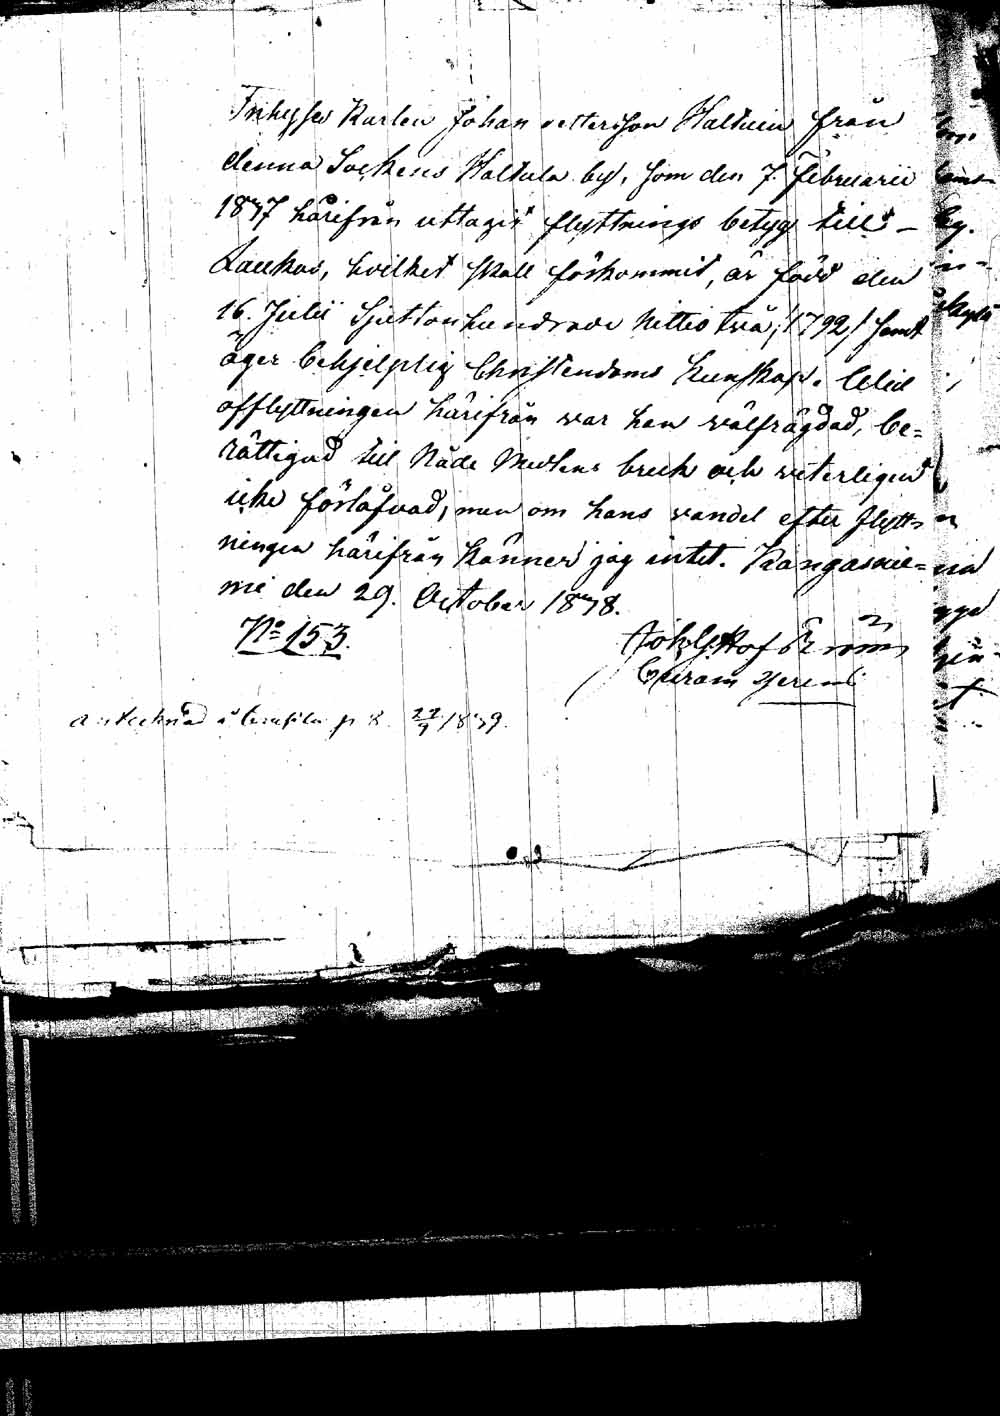 Karlen Johan Pettersson Haltuin från
denna Sockens Haltula by, som den 7. Februarii
1837 härifrån uttagit flyttnings betyg till
Laukas, hvilket skall förkommit, är född den
16. Julii Sjuttonhundrade Nittio två, /1792/ samt
äger behjelplig Christendoms kunskap. Wid
afflyttningen härifrån war han wälfrägdad, be=
rättigad till Nåde Medlens bruk och veterligen
icke förlåfvad, men om hans vandel efter flytt-
ningen härifrån känner jag intet. Kangasnie=
mi den 29. October 1838.
No 153.
Antecknad